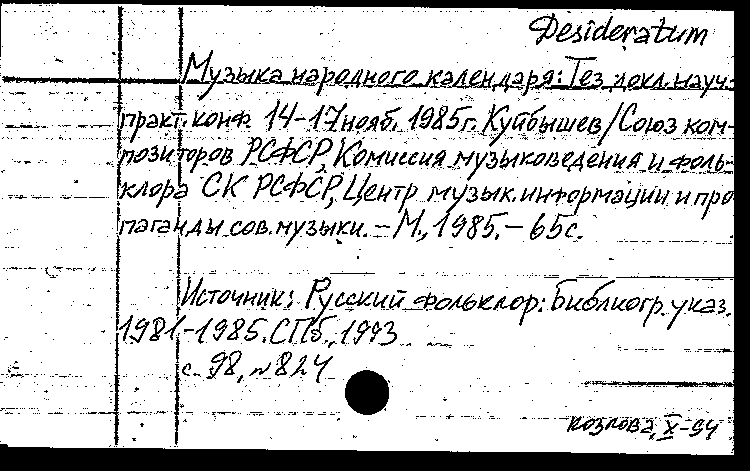 Desideratum
Музыка народного календаря: Тез. докл. науч.-
практ. конф. 14-17 нояб. 1985 г. Куйбышев / Союз ком-
позиторов РСФСР, Комиссия музыковедения и фоль-
клора СК РСФСР, Центр музык. информации и про
паганды сов. музыки. - М., 1985. - 65 с.
Источник: Русский фольклор: Библиогр. указ.
1981-1985. СПб., 1993
с. 98, № 824
Козлова, X-94